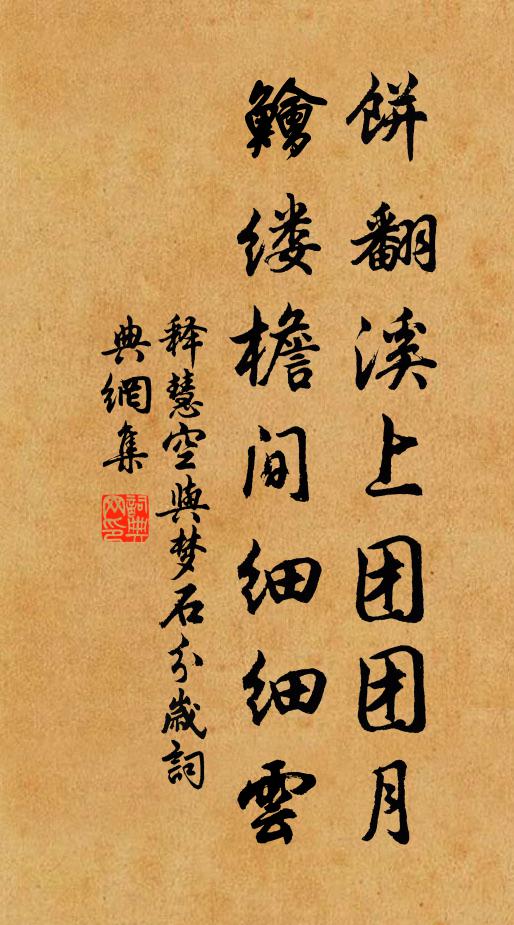 餅翻溪上团团月
鱠缕檐间细细雲
释慧空與梦石分歲詞
典網集
詞典
网印